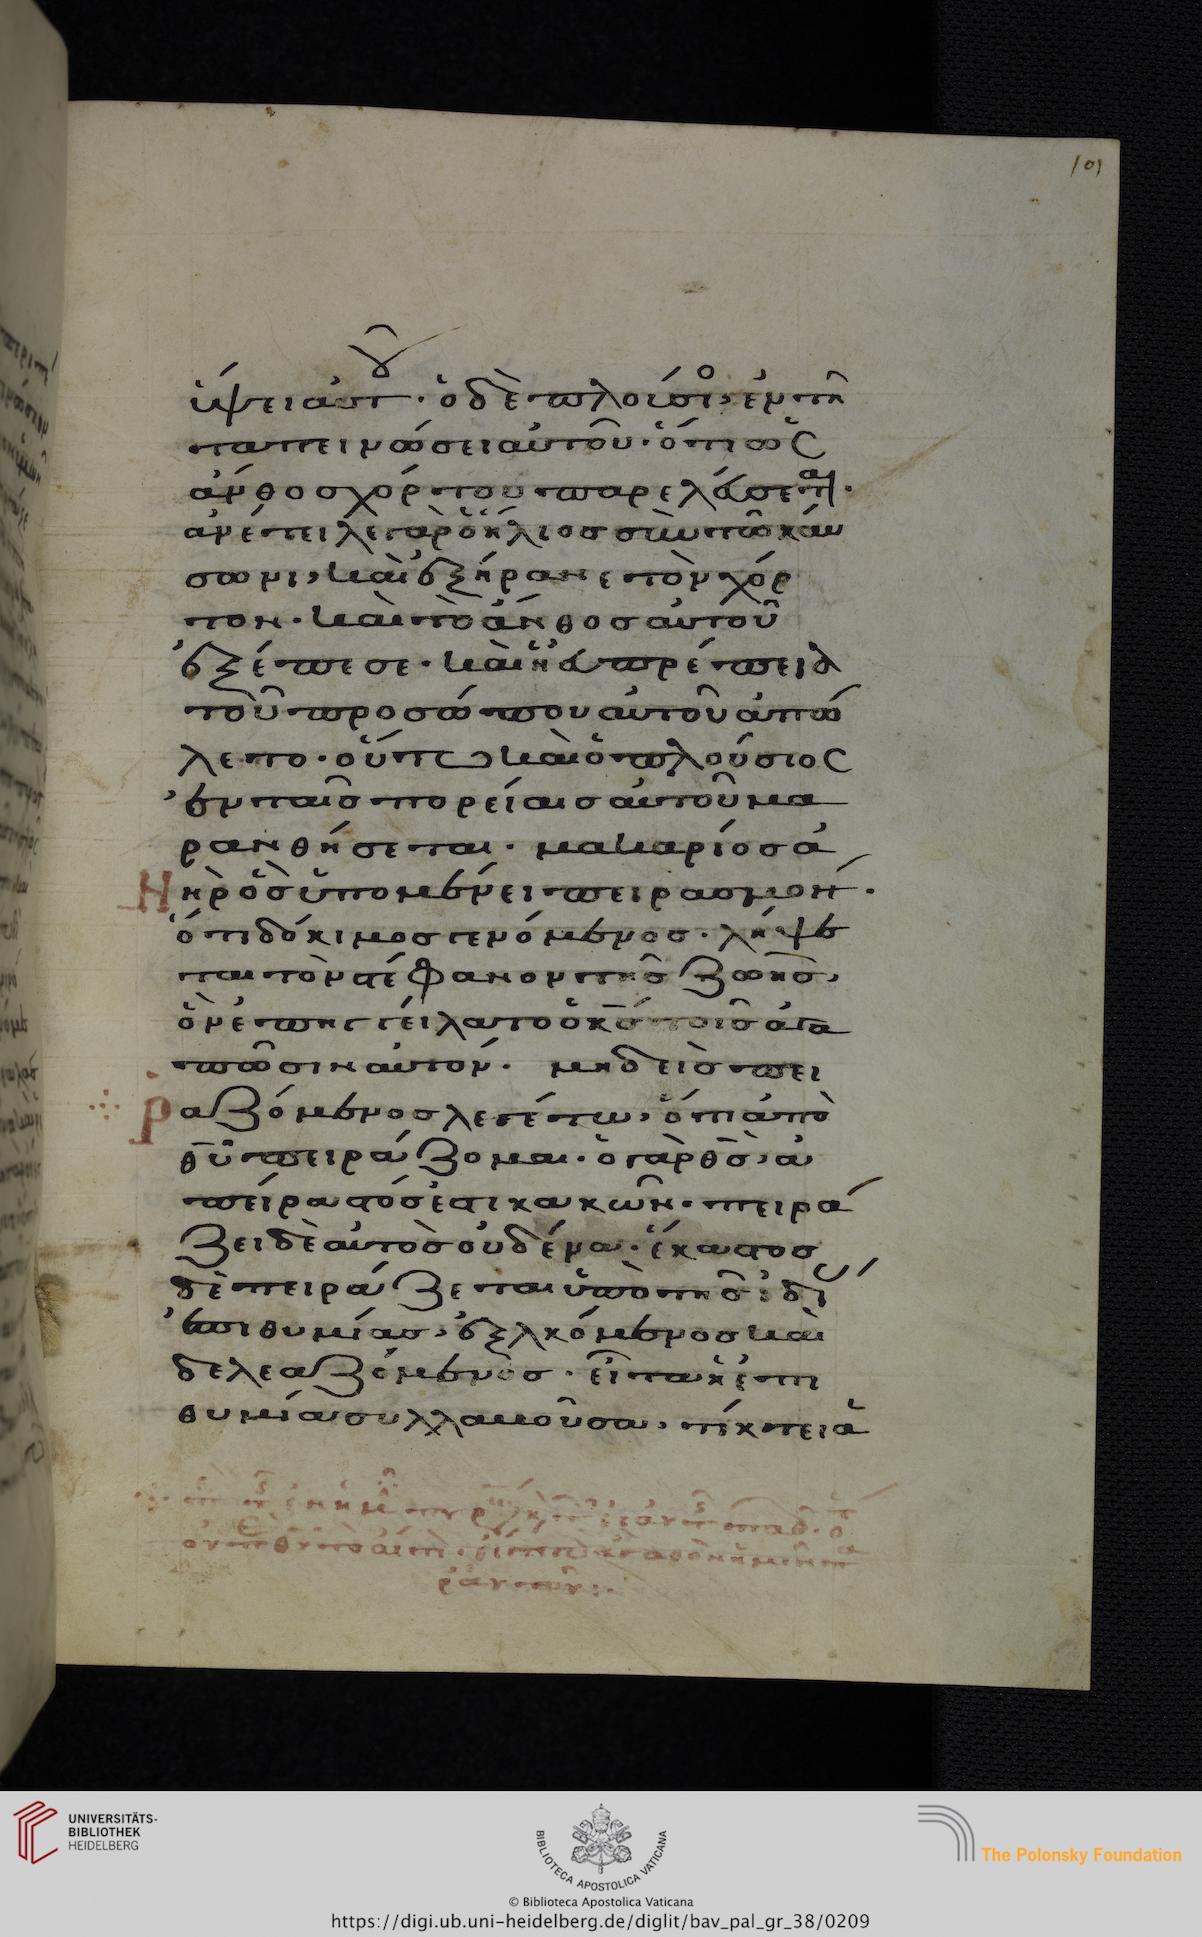 101
ὕψει αὐτοῦ· ὁ δὲ πλούσιος, ἐν τῆ
ταπεινώσει αὐτοῦ· ὅτι ὡς
ἄνθος χόρτου παρελεύσεται·
ἀνέτειλε γὰρ ὁ ἥλιος σὺν τῶ καύ
σωνι, καὶ ἐξήρανε τὸν χόρ
τον· καὶ τὸ ἄνθος αὐτοῦ
ἐξέπεσε· καὶ ἡ εὐπρέπεια
τοῦ προσώπου αὐτοῦ ἀπώ
λετο· οὕτω καὶ ὁ πλούσιος
ἐν ταῖς πορείαις αὐτοῦ μα
ρανθήσεται· μακάριος ἀ
νὴρ ὃς ὑπομένει πειρασμόν·
ὅτι δόκιμος γενόμενος· λήψε
ται τὸν στέφανον τῆς ζωῆς,
ὃν ἐπηγγείλατο ὁ κς τοῖς ἀγα
πῶσιν αὐτόν· μηδεὶς πει
ραζόμενος λεγέτω, ὅτι ἀπὸ
θυ πειράζομαι· ὁ γὰρ θς, ἀ
πείραστός ἐστι κακῶν· πειρά
ζει δὲ αὐτὸς οὐδένα· ἕκαστος
δὲ πειράζεται ὑπὸ τῆς ἰδίας
ἐπιθυμίας, ἐξελκόμενος καὶ
δελεαζόμενος· εἶτα ἡ ἐπι
θυμία συλλαβοῦσα, τίκτει ἁ
UNIVERSITÄTS-
BIBLIOTHEK
HEIDELBERG
BIBLIOTECA APOSTOLICA VATICANA
The Polonsky Foundation
© Biblioteca Apostolica Vaticana
https://digi.ub.uni-heidelberg.de/diglit/bav_pal_gr_38/0209